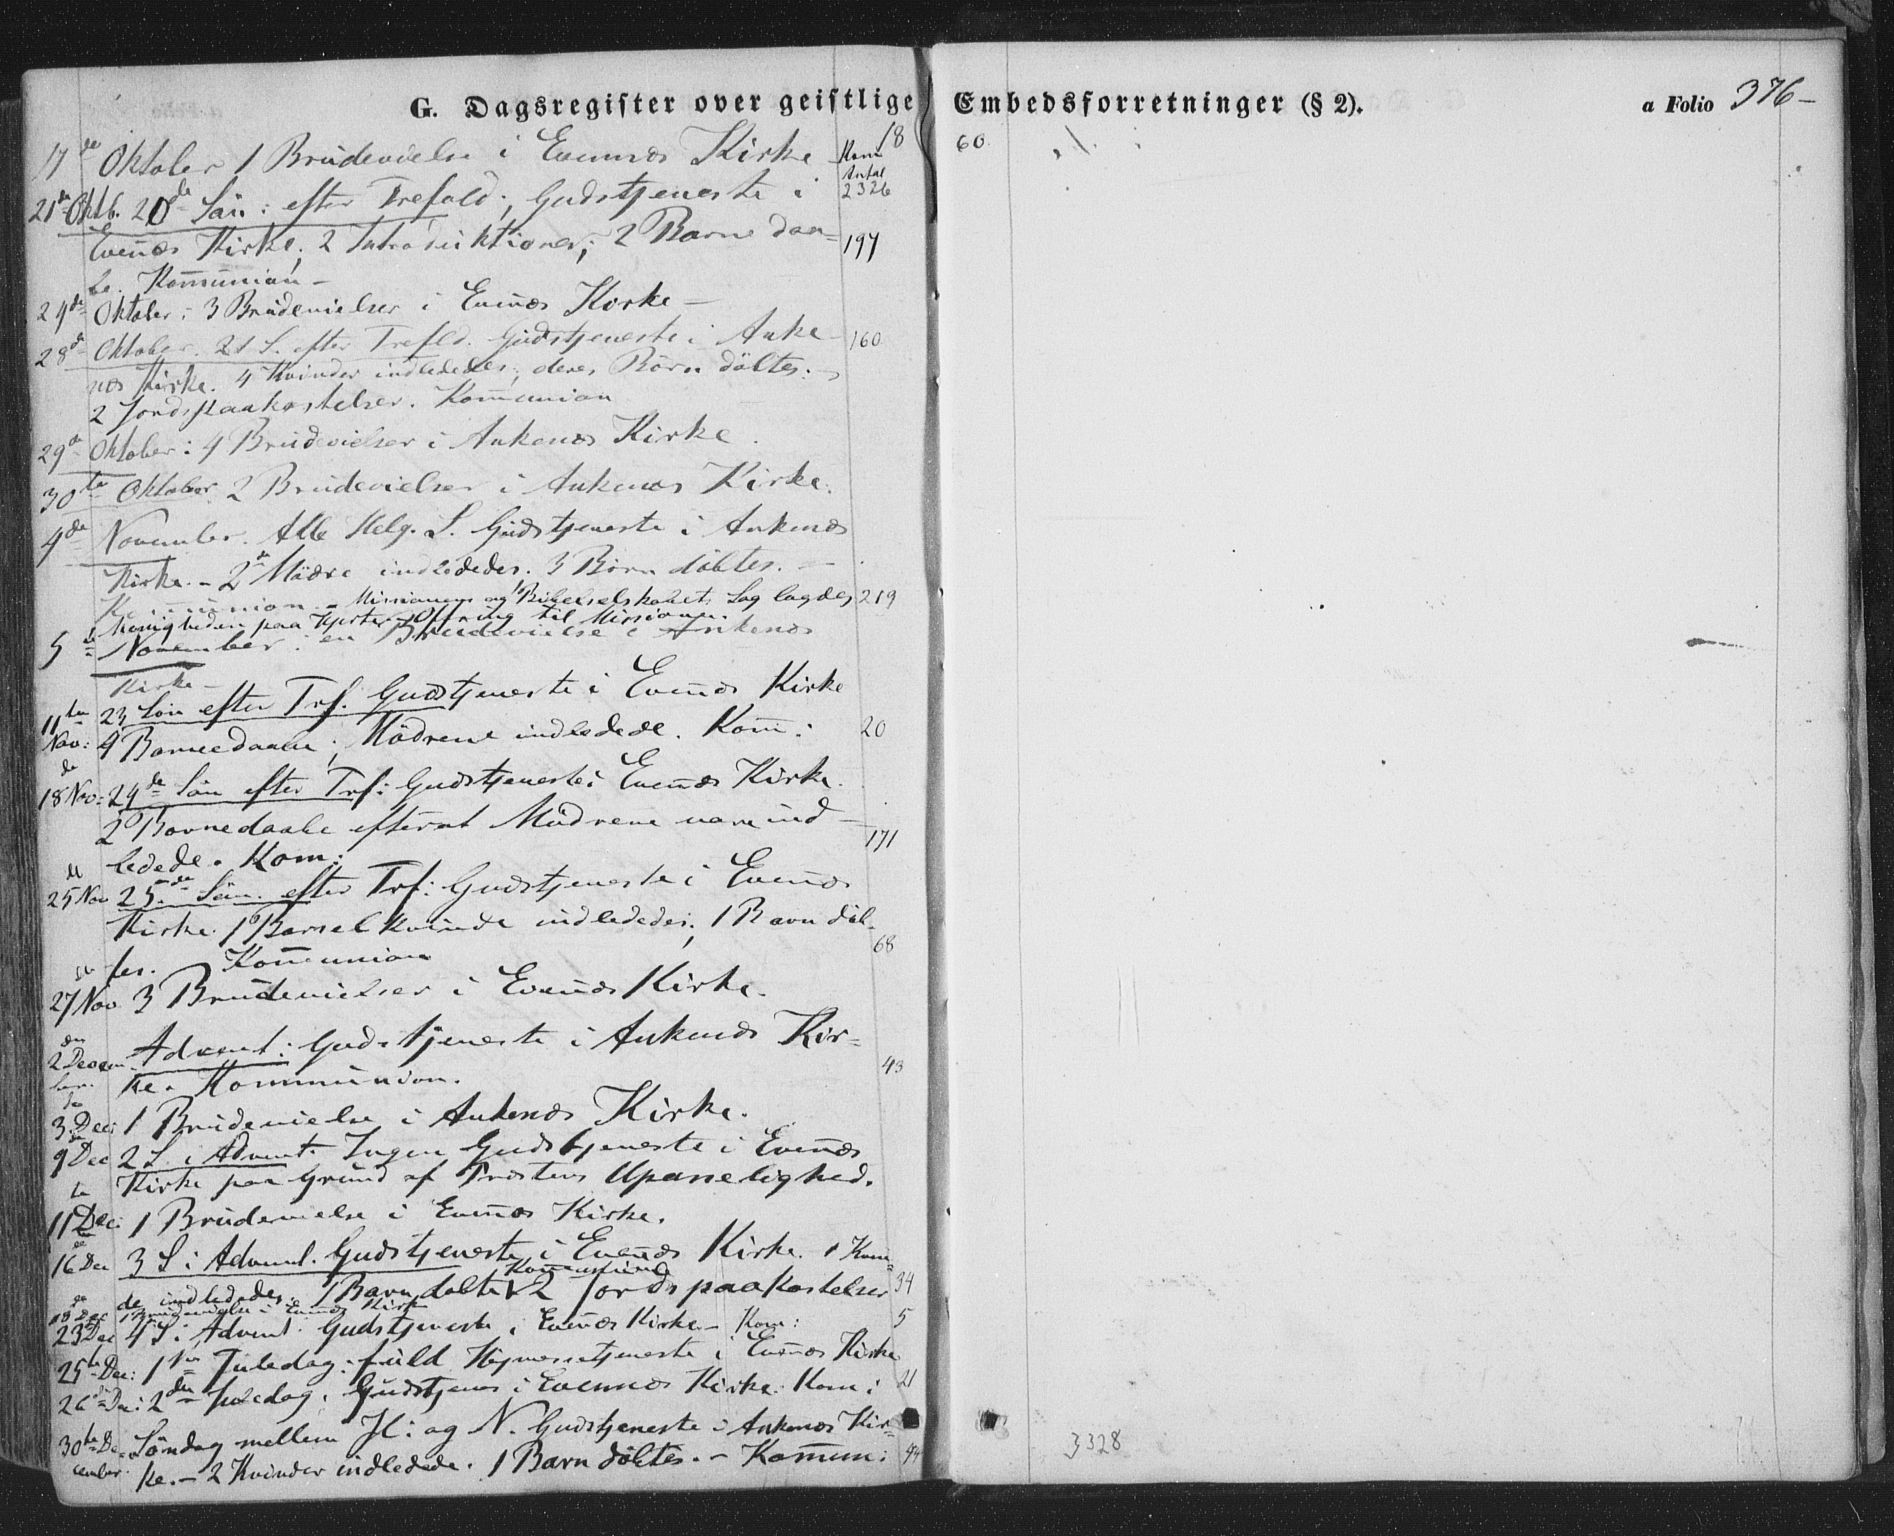 G. Dagsregister over geistlige Embedsforretninger (§ 2). a Folio 376-
18 60
17de Oktober 1 Brudevielse i Evenæs Kirke Kom Antal 2326
21de Oktb. 20de Sön: efter Trefold:, Gudstjeneste i
Evenæs Kirke, 2 Introduktioner, 2 Barnedaa= 197
be. Kommunion -
24de Oktober: 3 Brudevielser i Evenæs Kirke -
28de Oktober. 21 S. efter Trefld. Gudstjeneste i Anke 160
næs Kirke. 4 Kvinder indlededes, deres Börn döbtes. -
2 Jordspaakastelser. Kommunion
29de Oktober: 4 Brudevielser i Ankenæs Kirke.
30te Oktober 2 Brudevielser i Ankenæs Kirke.
4de November. Alle Helg. S. Gudstjeneste i Ankenæs
Kirke. - 2de Mödre indlededes. 3 Börn döbtes. -
Kommunion. - Missionens og Bibelselskabets Sag lagdes 219
Menigheden paa Hjerte. Offring til Missionen.
5te November: en Brudevielse i Ankenæs
Kirke -
11te Nov: 23 Sön efter Trf. Gudstjeneste i Evenæs Kirke
4 Barnedaabe; Mödrene indledede. Kom: 20
18de Nov: 24de Sön efter Trf: Gudstjeneste i Evenæs Kirke.
2 Barnedaabe efterat Mödrene vare ind- 171
ledede. Kom:
25de Nov 25de Sön. efter Trf: Gudstjeneste i Evenæs
Kirke. 1 Barselkvinde indlededes; 1 Barn döb-
tes. Kommunion 68
27de Nov 3 Brudevielser i Evenæs Kirke.
2den Decem- Advent: Gudstjeneste i Ankenæs Kir=
ber. ke. Kommunion. 43
3die Dec: 1 Brudevielse i Ankenæs Kirke.
9de Dec 2 S. i Advent. Ingen Gudstjeneste i Evenæs
Kirke paa Grund af Præstens Upasselighed.
11te Dec: 1 Brudevielse i Evenæs Kirke.
16de Dec 3 S i Advent. Gudstjeneste i Evenæs Kirke. 1 Kvin=
de indlededes. 1 Barn döbtes Kommunion 2 Jordspaakastelser 34
18de Dec 1 Brudevielse i Evenæs Kirke
23de Dec 4 S i Advent. Gudstjeneste i Evenæs Kirke - Kom: 5
25te Dec: 1ste Juledag: fuld Höjmessetjeneste i Evenæs Kirke
26de Dec: 2den Juledag: Gudstjenes i Evenæs Kirke. Kom: 21
30te De- Söndag mellem Jl: og N. Gudstjeneste i Ankenæs Kir-
cember. ke. - 2 Kvinder indledede. 1 Barn döbtes. - Kommun: 44
3328